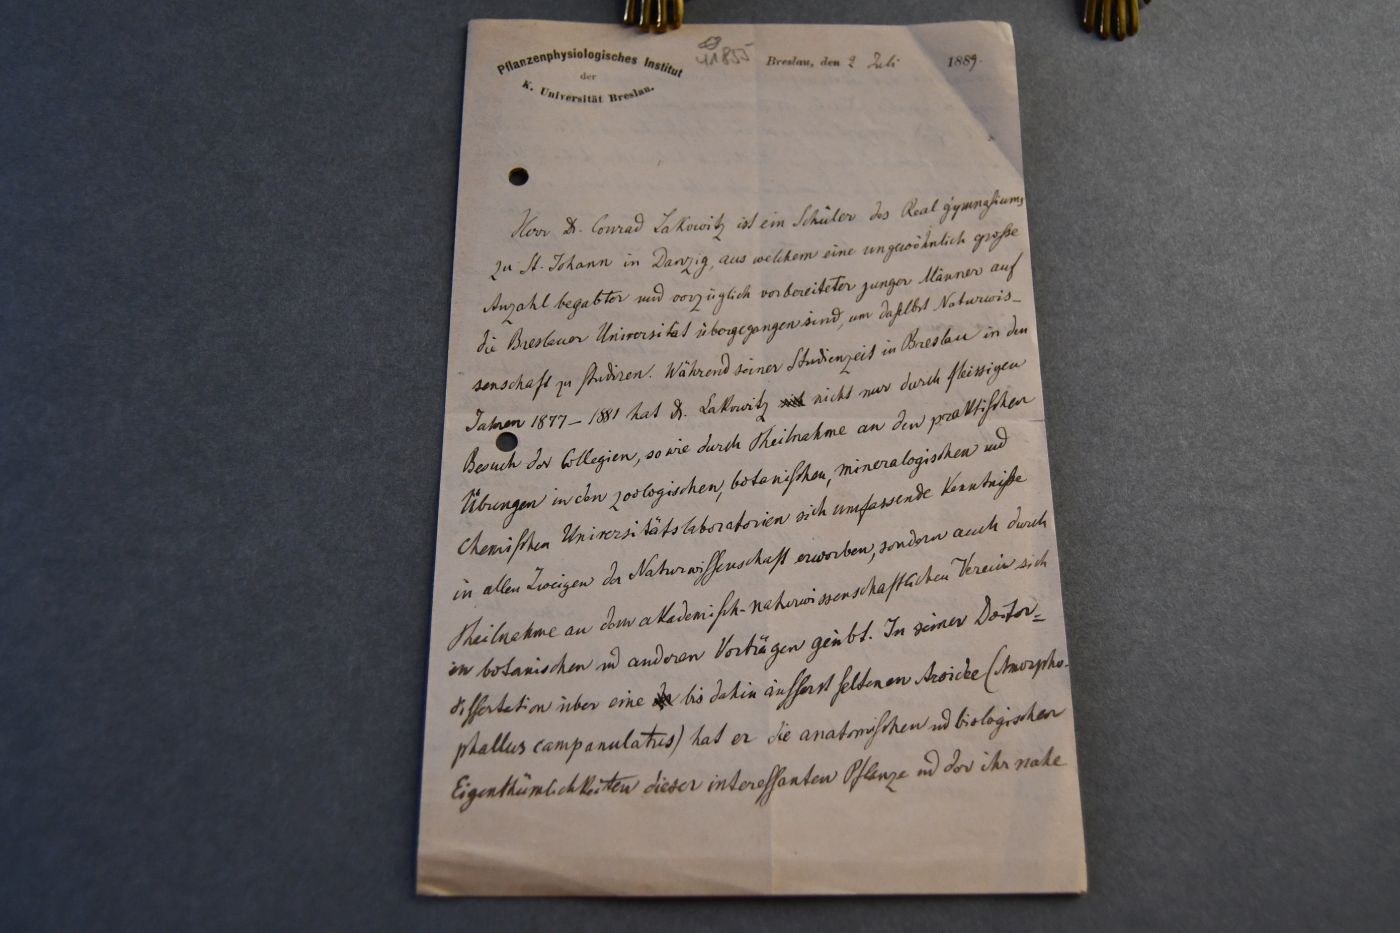 Pflanzenphysiologisches Institut
der
K. Universität Breslau.
41855
Breslau, den 2 Juli 1889.
Herr Dr. Conrad Lakowitz ist ein Schüler des Realgymnasiums
zu St. Johann in Danzig, aus welchem eine ungewöhnlich große
Anzahl begabter und vorzüglich vorbereiteter junger Männer auf
die Breslauer Universität übergegangen sind, um daselbst Naturwis-
senschaft zu studiren. Während seiner Studienzeit in Breslau in den
Jahren 1877–1881 hat Dr. Lakowitz nicht nur durch fleissigen
Besuch der Collegien, sowie durch Theilnahme an den praktischen
Übungen in den zoologischen, botanischen, mineralogischen und
chemischen Universitätslaboratorien sich umfassende Kenntniße
in allen Zweigen der Naturwissenschaft erworben, sondern auch durch
Theilnahme an dem akademisch-naturwissenschaftlichen Verein sich
in botanischen und anderen Vorträgen geübt. In seiner Doctor=
dissertation über eine bis dahin äusserst seltenen Aroidee (Amorpho-
phallus campanulatus) hat er die anatomischen und biologischen
Eigenthümlichkeiten dieser interessanten Pflanze und der ihr nahe